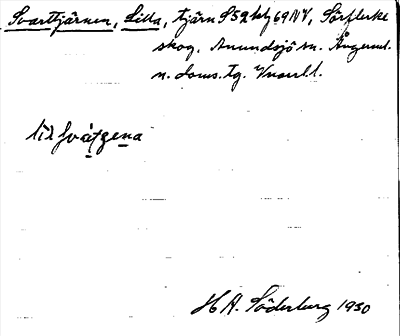 Svarttjärnen, Lilla, tjärn S52 bl 69 NV, Sörflärke
skog, Anundsjö sn. Ångerml.
n. doms. tg. Vnorrl l.
lil svátgena
H A. Söderberg 1930